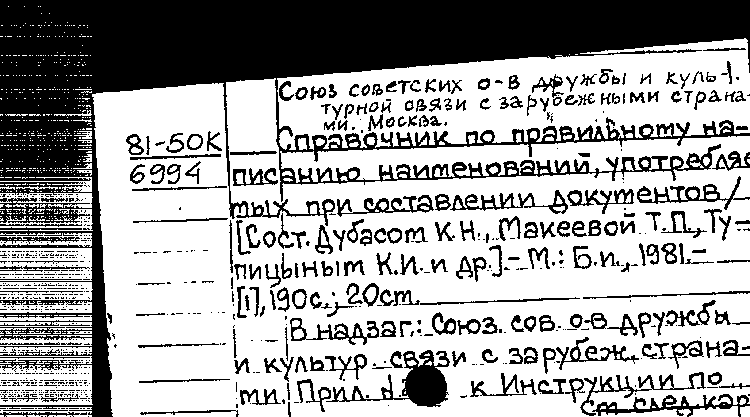 Союз советских о-в дружбы и куль-1.
турной связи с зарубежными страна-
ми. Москва.
81-50К
6994
Справочник по правильному на-
писанию наименований, употребляе
мых при составлении документов/
[Сост. Дубасом К.Н., Макеевой Т.П., Ту-
пицыным К.И. и др.].- М.: Б.и., 1981.-
[1], 190 с.; 20 см.
В надзаг.: Союз. сов. о-в дружбы
и культур. связи с зарубеж. страна-
ми. Прил. к Инструкции по
См. след. кар